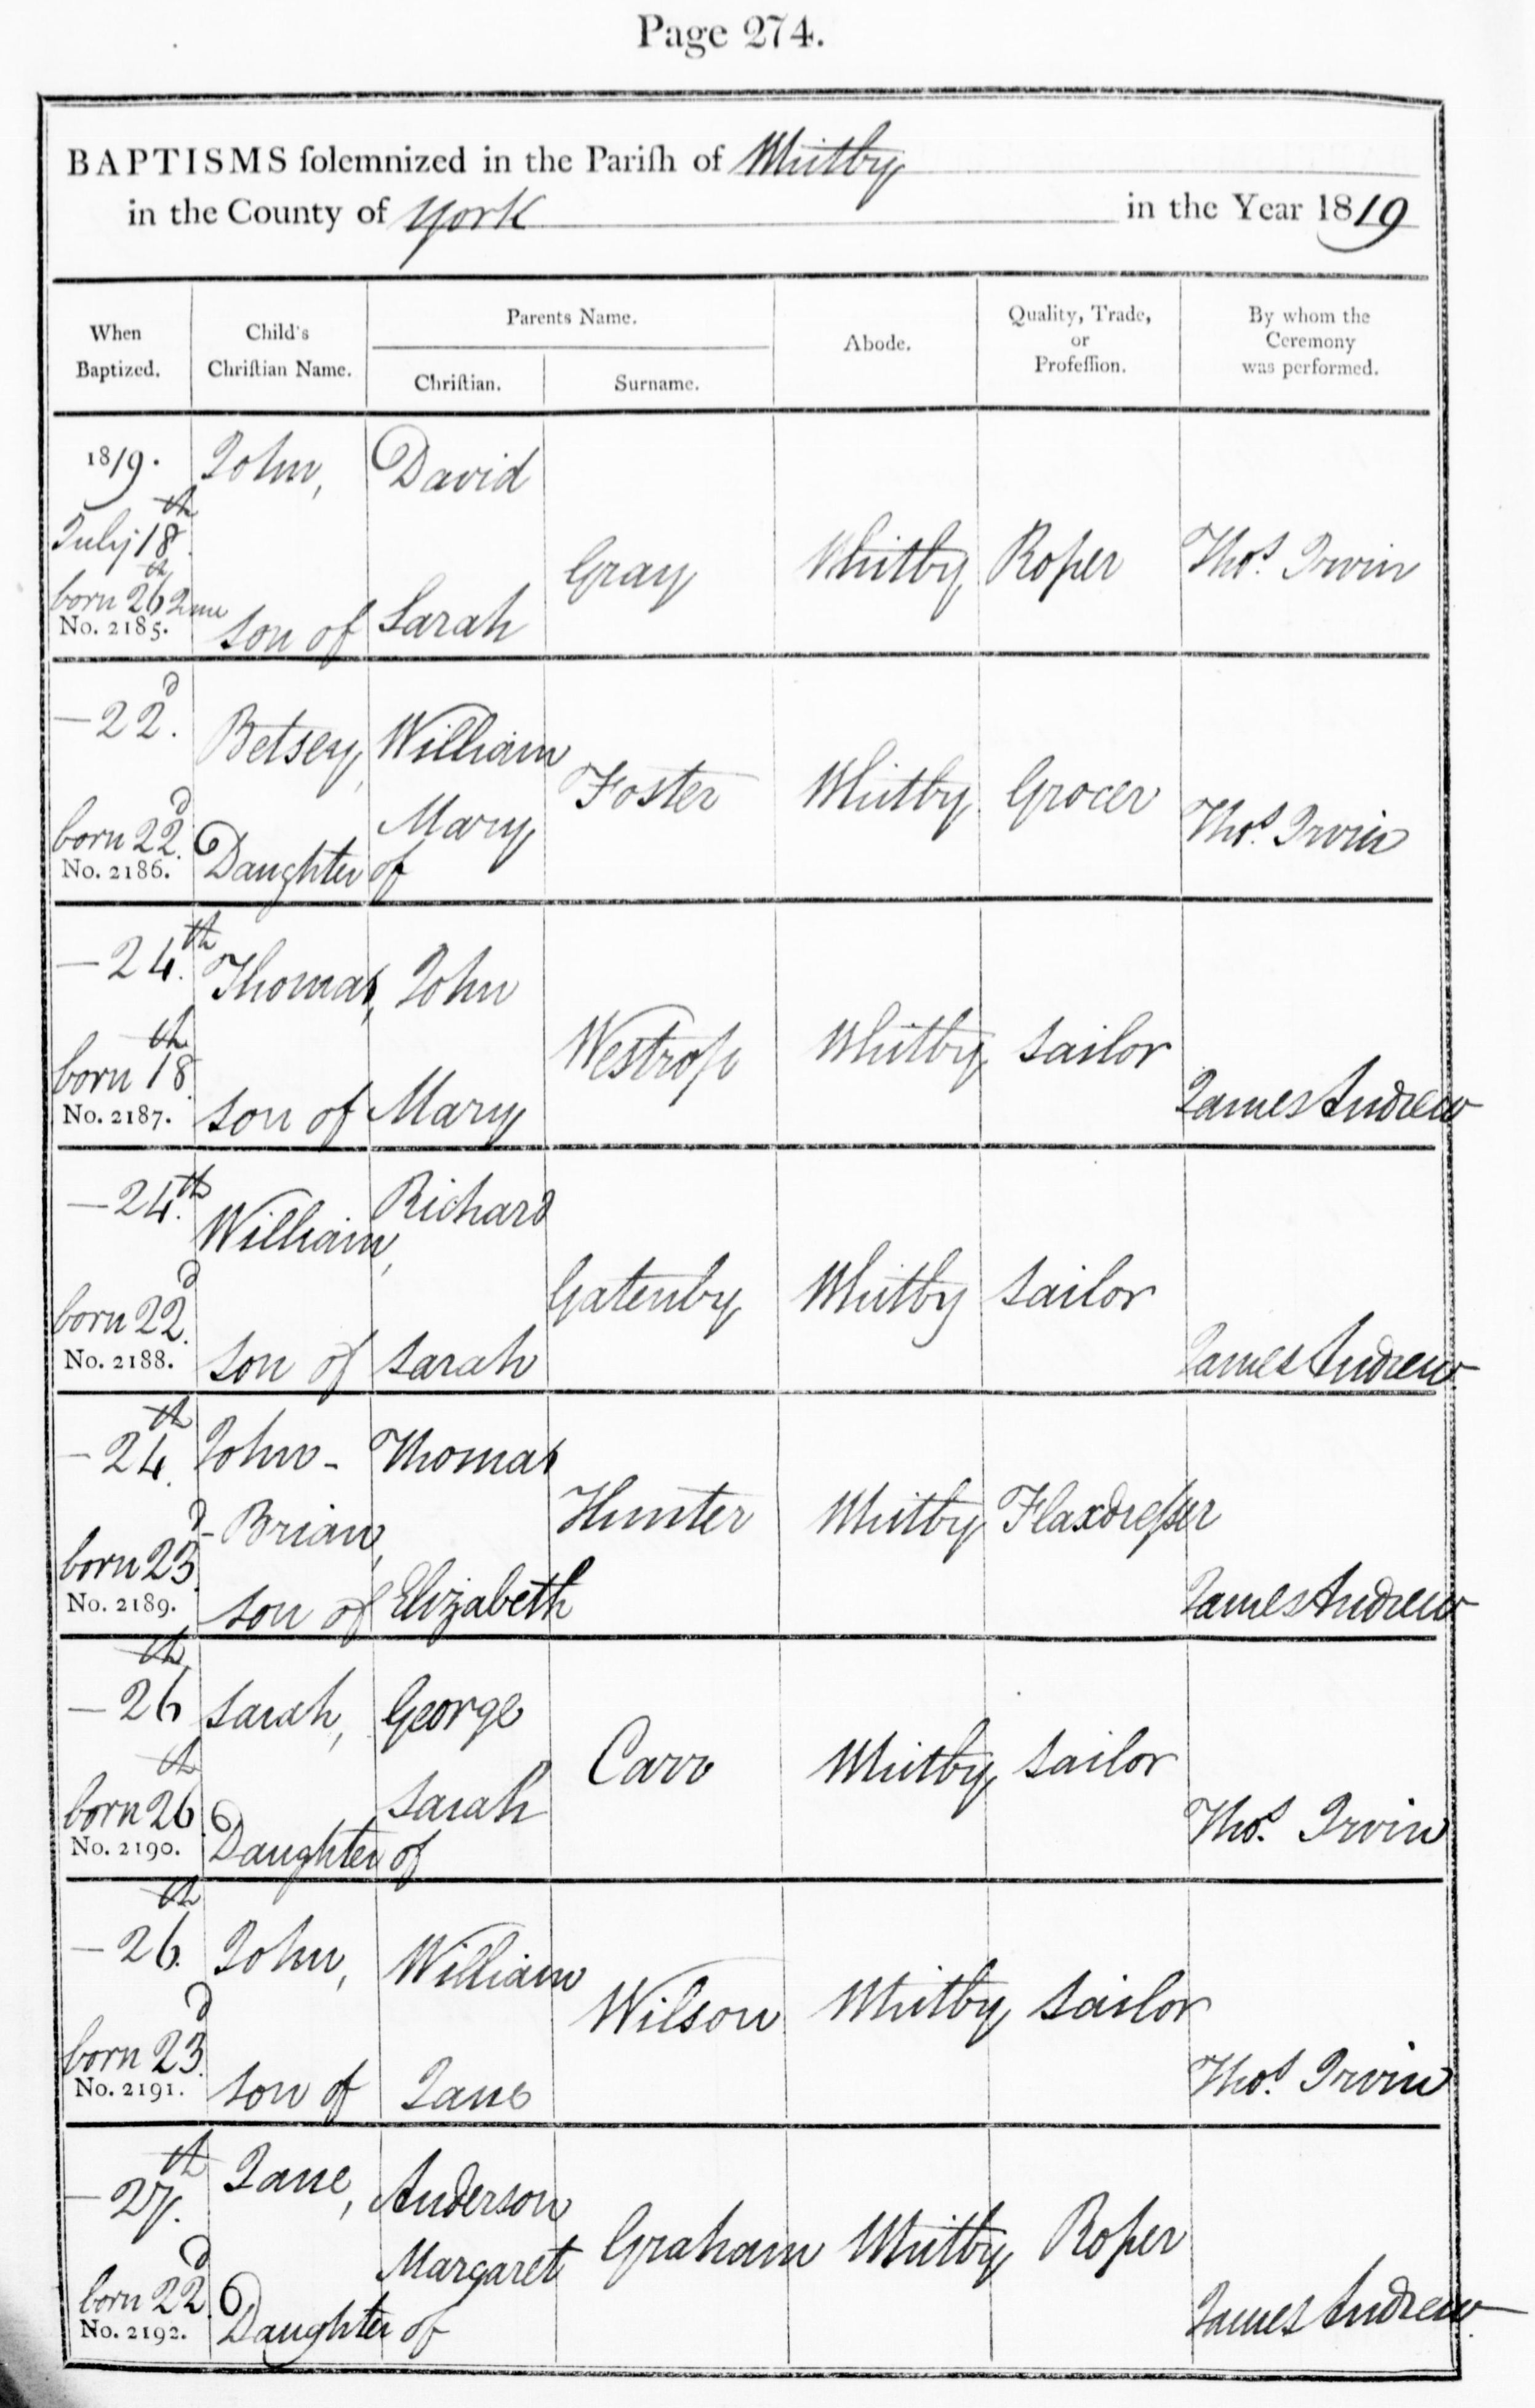 Page 274.
BAPTISMS ſolemnized in the Pariſh of Whitby
in the County of York in the Year 1819
When
Baptized.
Child's
Chriſtian Name.
Parents Name.
Chriſtian.
Surname.
Abode.
Quality, Trade,
or
Profeſſion.
By whom the
Ceremony
was performed.
1819.
July 18th
born 26th June
No. 2185.
John,
son of
David
Sarah
Gray
Whitby
Roper
Thos. Irvin
—22d.
born 22d.
No. 2186.
Betsey,
Daughter of
William
Mary
Foster
Whitby
Grocer
Thos. Irvin
—24th.
born 18th.
No. 2187.
Thomas,
son of
John
Mary
Westrop
Whitby
sailor
James Andrew
—24th.
born 22d.
No. 2188.
William,
son of
Richard
Sarah
Gatenby
Whitby
sailor
James Andrew
—24th.
born 23d.
No. 2189.
John-
-Brian,
son of
Thomas
Elizabeth
Hunter
Whitby
Flaxdreſser
James Andrew
—26th
born 26th.
No. 2190.
Sarah,
Daughter of
George
Sarah
Carr
Whitby
sailor
Thos. Irvin
—26th.
born 23d.
No. 2191.
John,
son of
William
Jane
Wilson
Whitby
sailor
Thos. Irvin
—27th.
born 22d.
No. 2192.
Jane,
Daughter of
Anderson
Margaret
Graham
Whitby
Roper
James Andrew